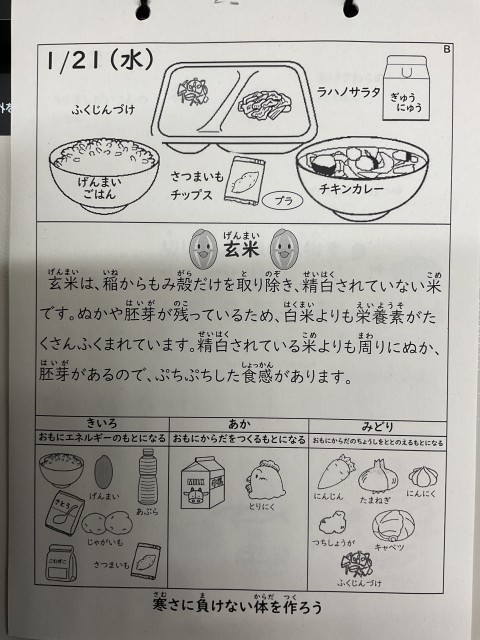 B
1/21(水)
ふくじんづけ
ラハノサラタ
ぎゅう
にゅう
げんまい
ごはん
さつまいも
チップス
プラ
チキンカレー
げんまい
玄米
げんまい いね がら と のぞ せいはく こめ
玄米は、稲からもみ殻だけを取り除き、精白されていない米
はいが のこ はくまい えいようそ
です。ぬかや胚芽が残っているため、白米よりも栄養素がた
せいはく こめ まわ
くさんふくまれています。精白されている米よりも周りにぬか、
はいが しょっかん
胚芽があるので、ぷちぷちした食感があります。
きいろ あか みどり
おもにエネルギーのもとになる おもにからだをつくるもとになる おもにからだのちょうしをととのえるもとになる
げんまい
あぶら
さとう
じゃがいも
こむぎこ
さつまいも
とりにく
にんじん
たまねぎ
にんにく
つちしょうが
キャベツ
ふくじんづけ
さむ ま からだ つく
寒さに負けない体を作ろう